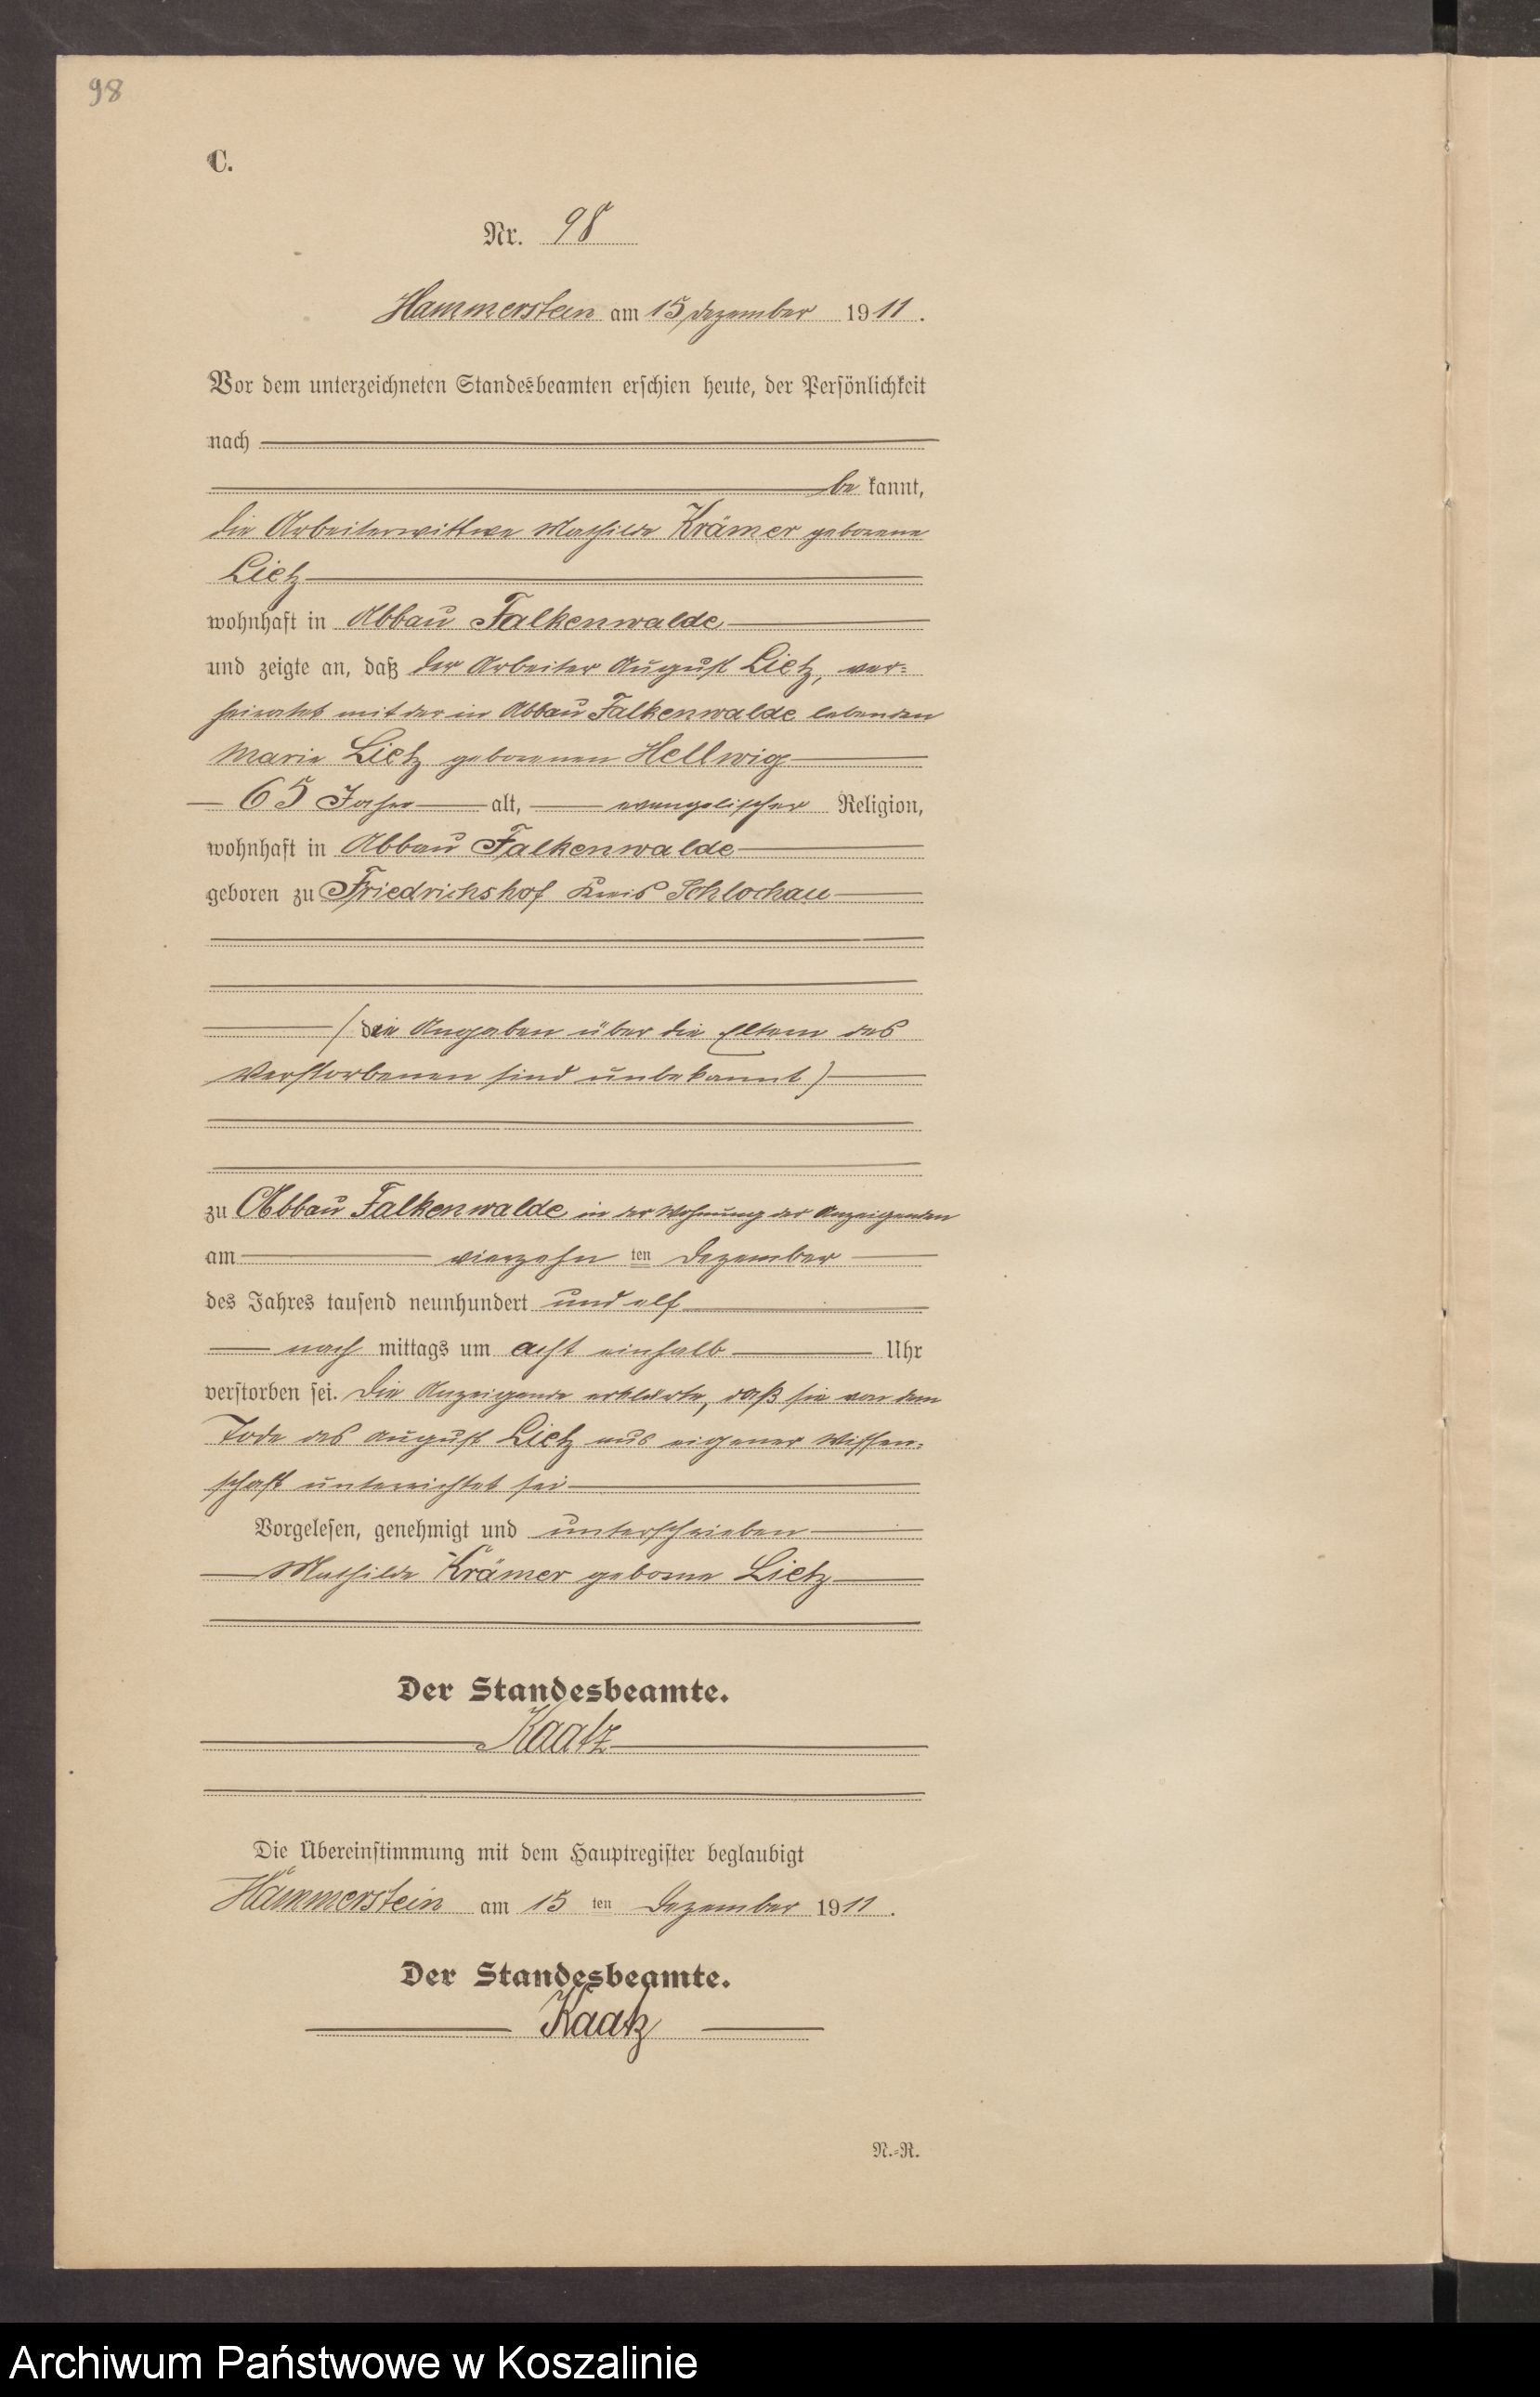 98
C.
Nr. 98
Hammerstein am 15 Dezember 1911.
Vor dem unterzeichneten Standesbeamten erschien heute, der Persönlichkeit
nach
be kannt,
die Arbeiterwittwe Mathilde Krämer geborene
Lietz
wohnhaft in Abbau Falkenwalde
und zeigte an, daß der Arbeiter August Lietz, ver=
heiratet mit der in Abbau Falkenwalde lebenden
Marie Lietz geborenen Hellwig
65 Jahre alt, evangelischer Religion,
wohnhaft in Abbau Falkenwalde
geboren zu Friedrichshof Kreis Schlochau
(die Angaben über die Eltern des
Verstorbenen sind unbekannt)
zu Abbau Falkenwalde in der Wohnung der Anzeigenden
am vierzehn ten Dezember
des Jahres tausend neunhundert und elf
nach mittags um acht einhalb Uhr
verstorben sei. Die Anzeigende erklärte, daß sie von dem
Tode des August Lietz aus eigener Wissen=
schaft unterrichtet sei
Vorgelesen, genehmigt und unterschrieben
Mathilde Krämer geborne Lietz
Der Standesbeamte.
Kaatz
Die Übereinstimmung mit dem Hauptregister beglaubigt
Hammerstein am 15 ten Dezember 1911.
Der Standesbeamte.
Kaatz
N.-R.
Archiwum Państwowe w Koszalinie